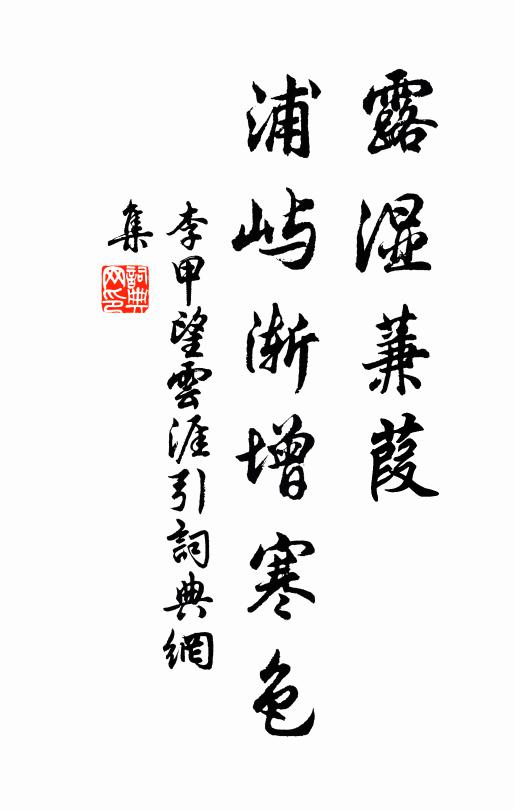 露湿蒹葭
浦屿渐增寒色
李甲望雲涯引詞典網
集
詞典
网印